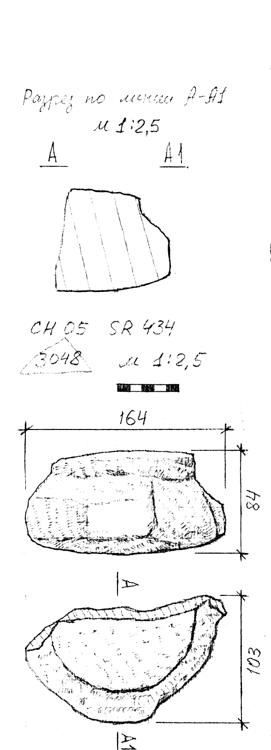 Разрез по линии А-А1
м 1:2,5
А А1
CH 05 SR 434
3048 м 1:2,5
164
84
А
103
А1